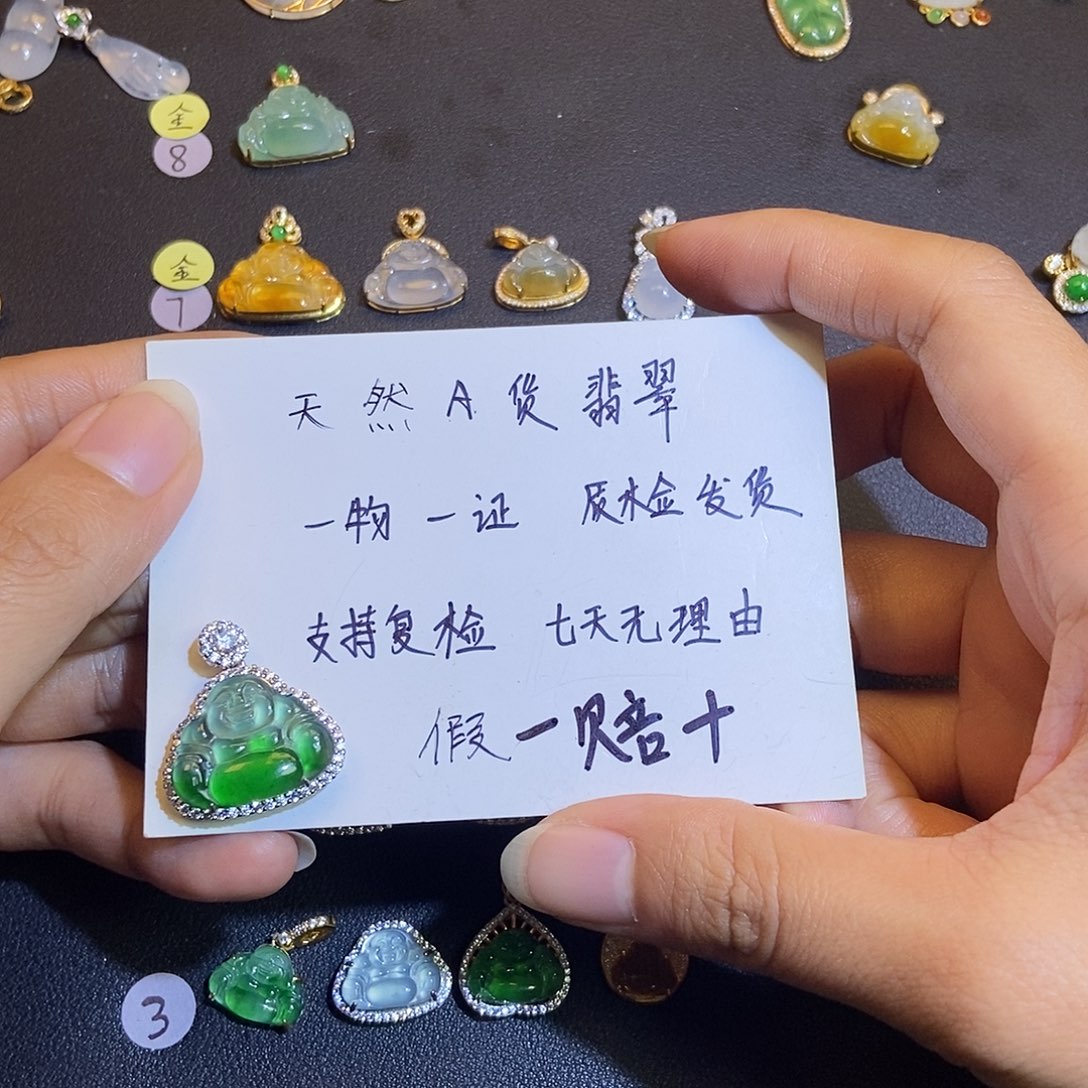 全
8
全
7
天然A货翡翠
一物一证 质检发货
支持复检 七天无理由
假一赔十
3